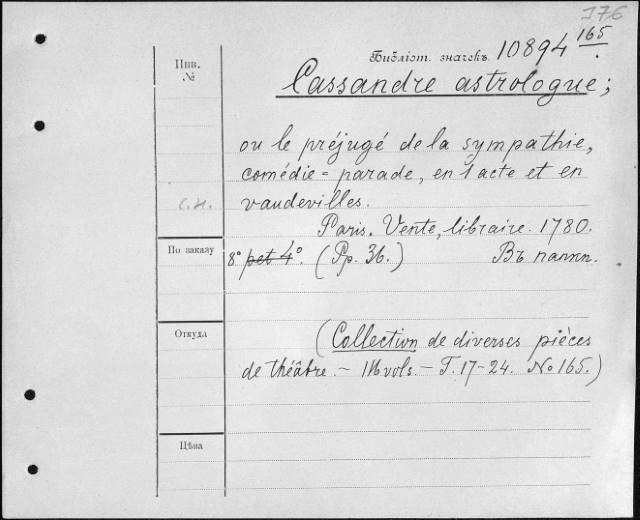 176
Библіот. значекъ. 10894 165.
Инв.
№
Cassandre astrologue;
ou le préjugé de la sympathie,
comédie=parade, en 1 acte et en
С.Н. vaudevilles.
Paris. Vente, libraire. 1780.
По заказу
8° pet 4°. (Pp. 36.) Въ папкѣ.
Откуда
(Collection de diverses pièces
de théâtre. – vols. – T. 17–24. No 165.)
Цѣна